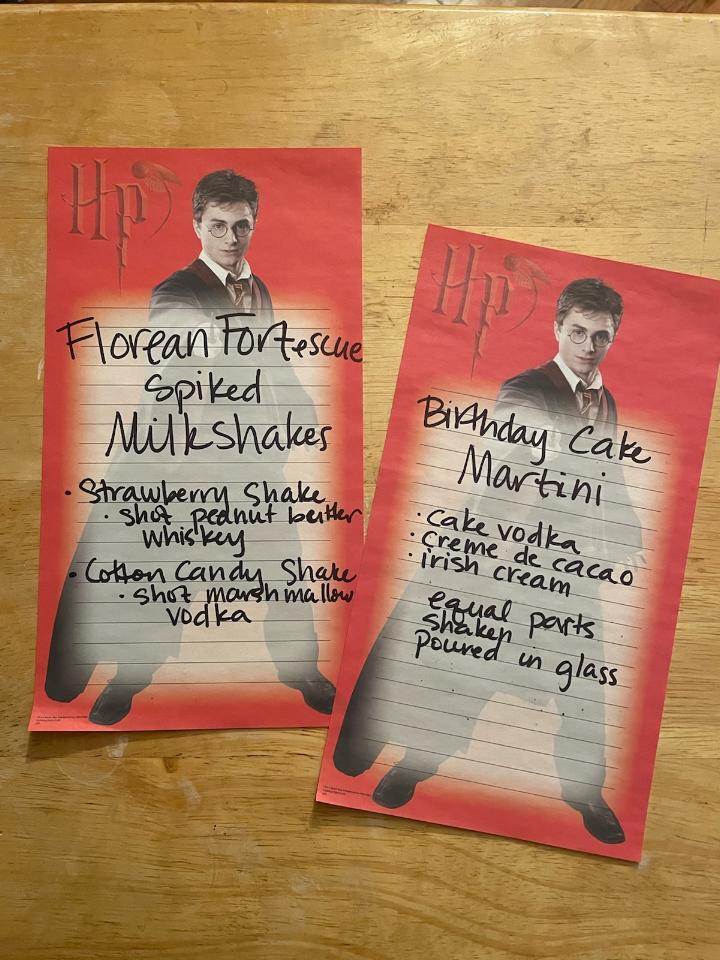 HP
Florean Fortescue
Spiked
Milkshakes
• Strawberry Shake
• shot peanut butter
whiskey
• Cotton Candy Shake
• shot marshmallow
vodka
HP
Birthday Cake
Martini
• cake vodka
• creme de cacao
• irish cream
equal parts
shaken
poured in glass